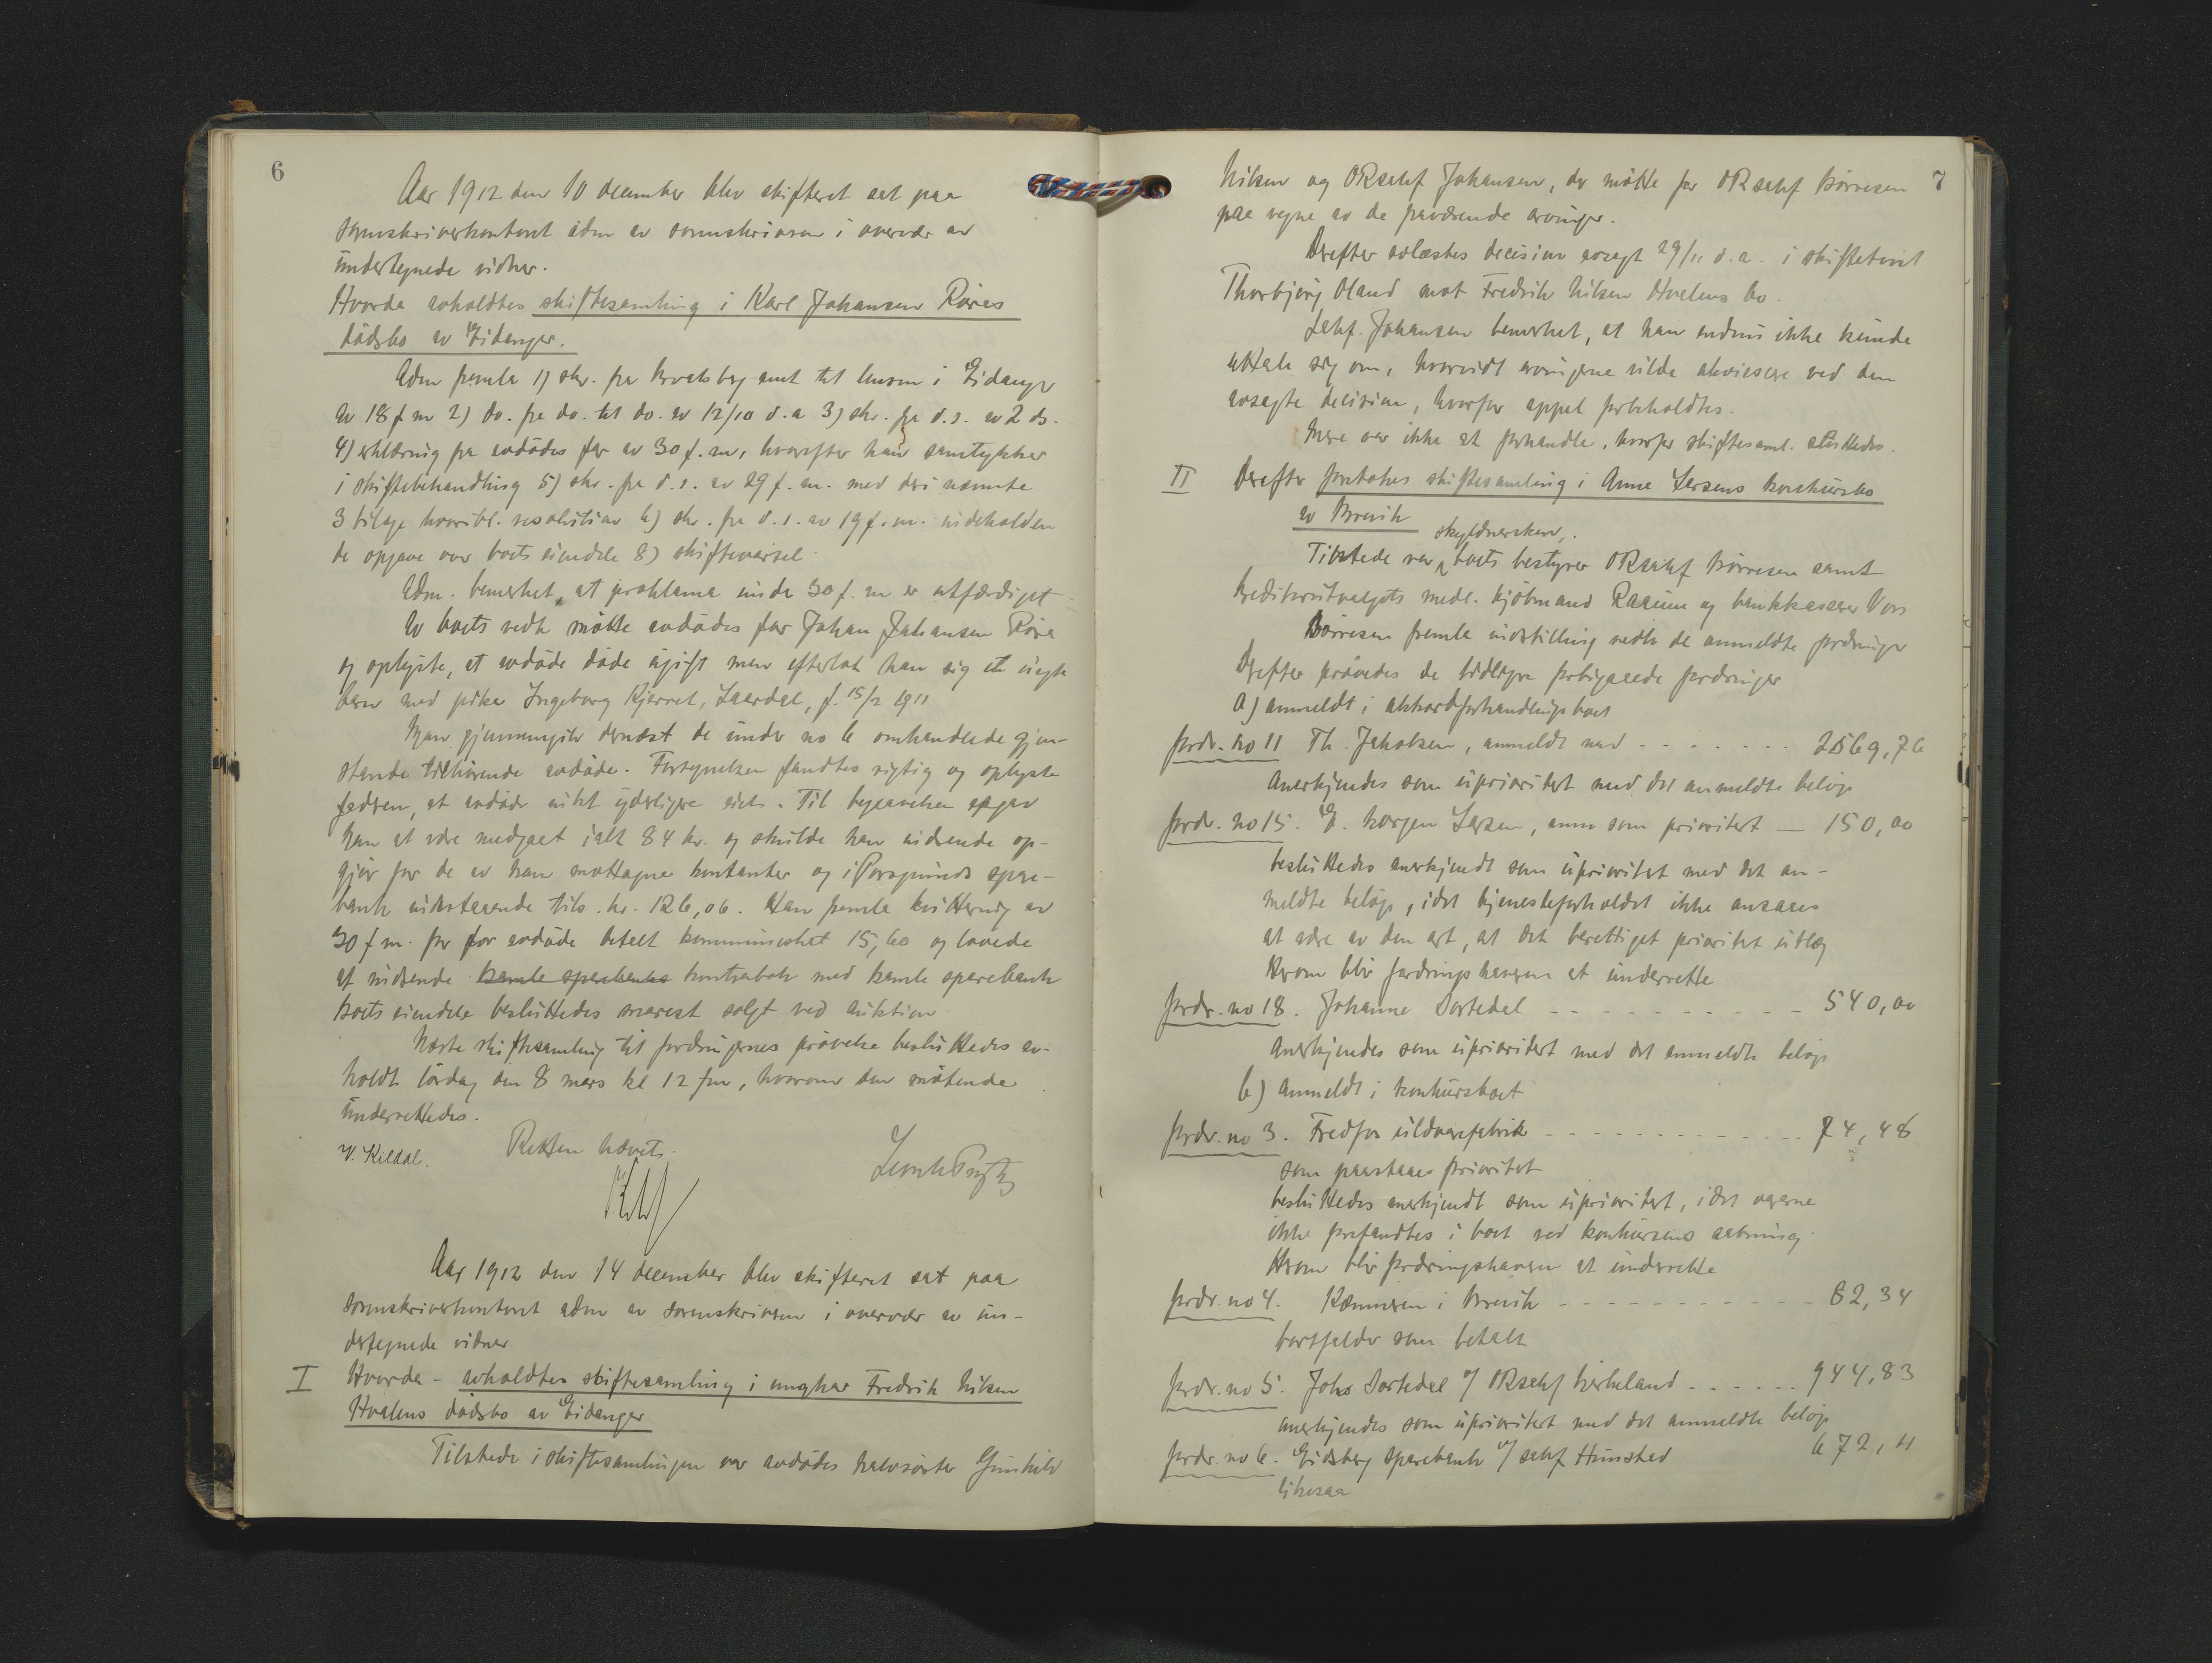 6
Aar 1912 den 10 december blev skifteret sat paa
sorenskriverkontoret adm av sorenskriveren i overvær av
undertegnede vidner.
Hvorda avholdtes skiftesamling i Karl Johansen Røras
dødsbo av Eidanger.
Adm fremla 1) skr. fra Bratsberg amt til lensm i Eidanger
av 18 f m 2) do. fra do. til do. av 12/10 d.a 3) skr. fra d.s. av 2 ds.
4) erklæring fra avdødes far av 30 f.m., hvorefter han samtykker
i skiftebehandling 5) skr. fra d.s. av 29 f.m. med deri nævnte
3 bilage hvoribl. resolution 6) skr. fra d.s. av 19 f.m. indeholden
de opgave over boets eiendele 8) skiftevarsel.
Adm. bemerket, at proklama under 30 f.m er utfærdiget
Av boets vedk møtte avdødes far Johan Johansen Røra
og oplyste, at avdøde døde ugift men efterlot han sig et uegte
barn med pike Ingeborg Kjerret, Laardal, f. 15/2 1911
Man gjennemgik dernæst de under no 6 omhandlede gjen-
stande tilhørende avdøde. Fortegnelsen fandtes rigtig og oplyste
faderen, at avdøde intet yderligere eiet. Til begravelsen opgav
han at være medgaat ialt 84 kr. og skulde han indsende op-
gjør for de av han mottagne kontanter og i Porsgrunds spare-
bank indestaaende tils. kr. 126,06. Han fremla kvittering av
30 f m. for for avdøde betalt kommuneskat 15,60 og lovede
at indsende bamle sparebanks kontrabok med bamle sparebank
Boets eiendele besluttedes snarest solgt ved auktion
Næste skiftesamling til fordringernes prøvelse besluttedes av-
holdt lørdag den 8 mars kl 12 fm, hvorom den møtende
underrettedes.
Retten hævet.
V. Kildal.
Aar 1912 den 14 december blev skifteret sat paa
sorenskriverkontoret adm av sorenskriveren i overvær av un-
dertegnede vidner
I Hvorda - avholdtes skiftesamling i ungkar Fredrik Nilsen
Hvalens dødsbo av Eidanger
Tilstede i skiftesamlingen var avdødes halvsøster Gunhild
7
Nilsen og ORsakf Johansen, der møtte for ORsakf Børresen
paa vegne av de fraværende arvinger.
Derefter avlæstes decision avsagt 29/11 d.a. i skiftetvist
Thorbjørg Oland mot Fredrik Nilsen Hvalens bo.
Sakf. Johansen bemerket, at han endnu ikke kunde
uttale sig om, hvorvidt arvingerne vilde akviescere ved den
avsagte decision, hvorfor appel forbeholdtes.
Mere var ikke at forhandle, hvorfor skiftesaml. sluttedes.
II Derefter foretokes skiftesamling i Anne Larsens konkursbo
av Brevik
skyldnersken,
Tilstede var boets bestyrer ORsakf Børresen samt
kreditorutvalgets medl. kjøbmand Raaum og bankkasserer Vors
Børresen fremla indstilling vedk de anmeldte fordringer
Derefter prøvedes de tidligere forbigaaede fordringer
a) anmeldt i akkordforhandlingsboet
fordr. no 11 Th. Jakobsen, anmeldt med - - - - - - - 2569,76
Anerkjendes som uprioritert med det anmeldte beløp
fordr. no 15. Larsen, anm som prioritert — 150,00
besluttedes anerkjendt som uprioritert med det an-
meldte beløp, idet tjenesteforholdet ikke ansaaes
at være av den art, at det berettiget prioritet utlæg
Herom blir fordringshaveren at underrette
fordr. no 18. Johanne Dortedal - - - - - - - - - - - 540,00
Anerkjendes som uprioritert med det anmeldte beløp
b) anmeldt i konkursboet
fordr. no 3. Fredfos uldvarefabrik - - - - - - - - - - - - 74,48
som paastaaes prioritert
besluttedes anerkjendt som uprioritert, idet varerne
ikke forefandtes i boet ved konkursens aabning
Herom blir fordringshaveren at underrette
fordr. no 4. Kæmneren i Brevik - - - - - - - - - - - 82,34
bortfalder som betalt
fordr. no 5. Johs Dortedal v/ ORsakf Birkeland - - - - - - 944,83
anerkjendes som uprioritert med det anmeldte beløp
fordr. no 6. Eidsberg sparebank v/ sakf Hunstad 672,11
likesaa